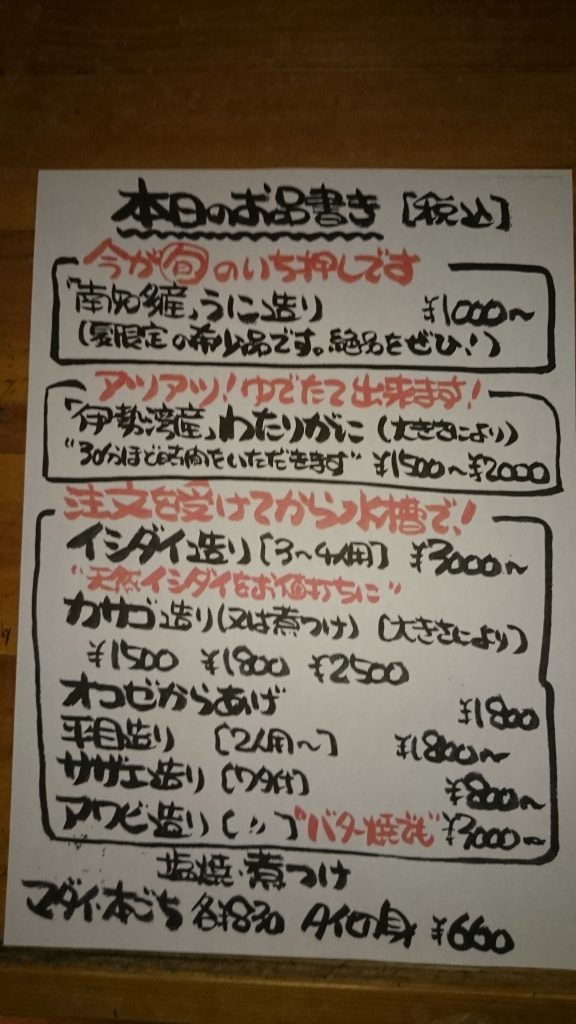 本日のお品書き [税込]
今が旬のいち押しです
「南知多産」うに造り ¥1000〜
(夏限定の希少品です。絶品をぜひ!)
アツアツ!ゆでたて出来ます!
「伊勢湾産」わたりがに (大きさにより)
"30分ほど時間をいただきます" ¥1500〜¥2000
注文を受けてから水槽で!
イシダイ造り [3〜4人用] ¥3000〜
"天然イシダイをお値打ちに"
カサゴ造り(又は煮つけ) [大きさにより]
¥1500 ¥1800 ¥2500
オコゼからあげ ¥1800
平目造り [2人用〜] ¥1800〜
サザエ造り [ワタ付] ¥800〜
アワビ造り [〃] "バター焼でも" ¥3000〜
塩焼・煮つけ
マダイ・本ごち 各¥830 タイの身 ¥660